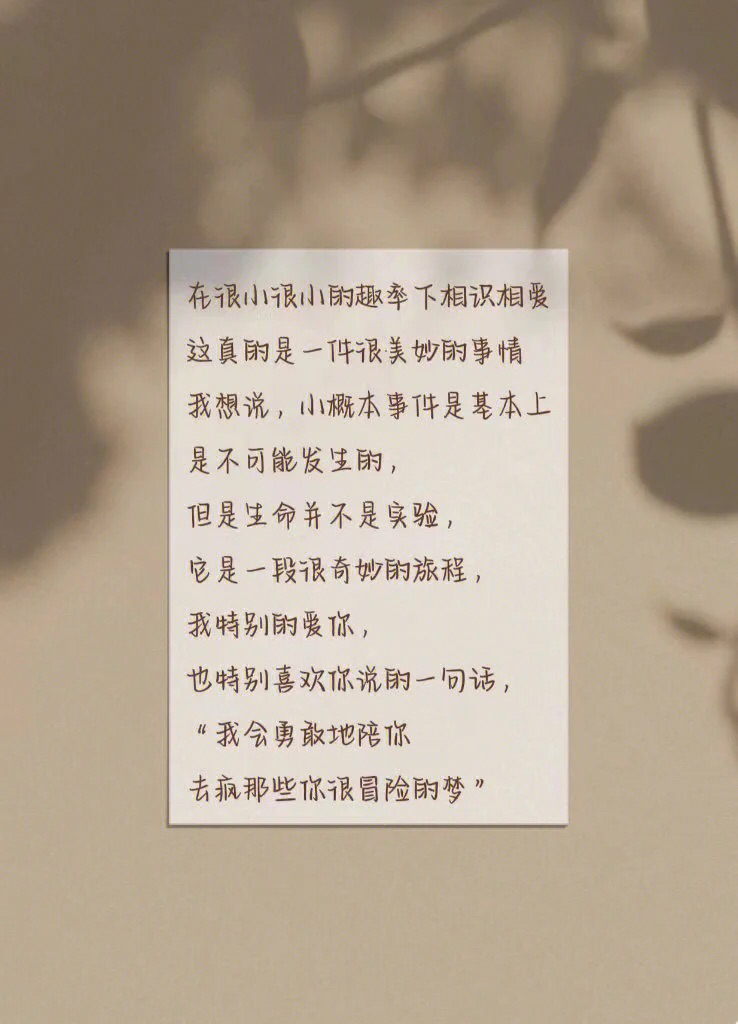 在很小很小的趣率下相识相爱
这真的是一件很美妙的事情
我想说，小概本事件是基本上
是不可能发生的，
但是生命并不是实验，
它是一段很奇妙的旅程，
我特别的爱你，
也特别喜欢你说的一句话，
“我会勇敢地陪你
去疯那些你很冒险的梦”